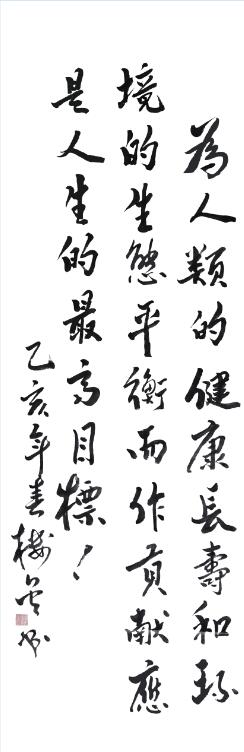 為人類的健康長壽和環
境的生態平衡而作貢献應
是人生的最高目標！
乙亥年春樓